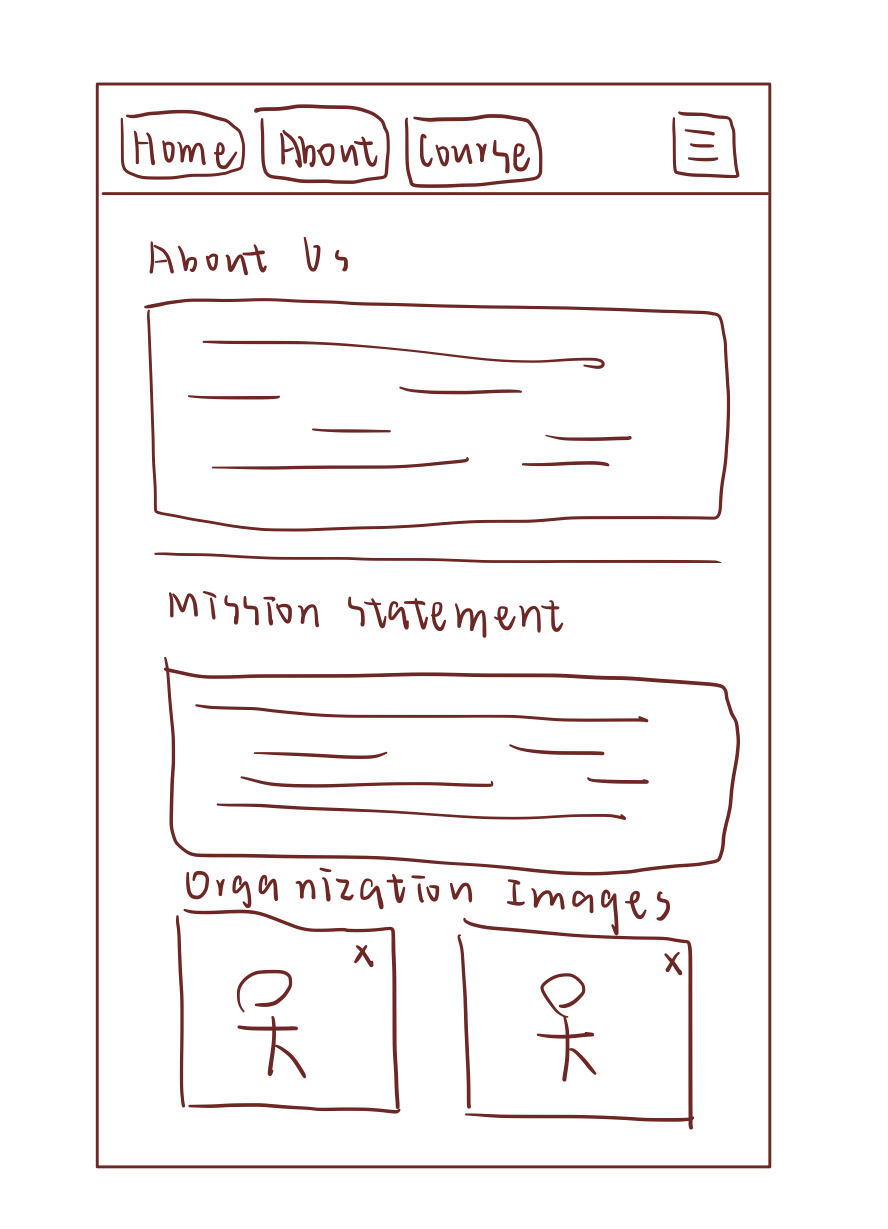 Home About Course
About Us
Mission Statement
Organization Images
x x